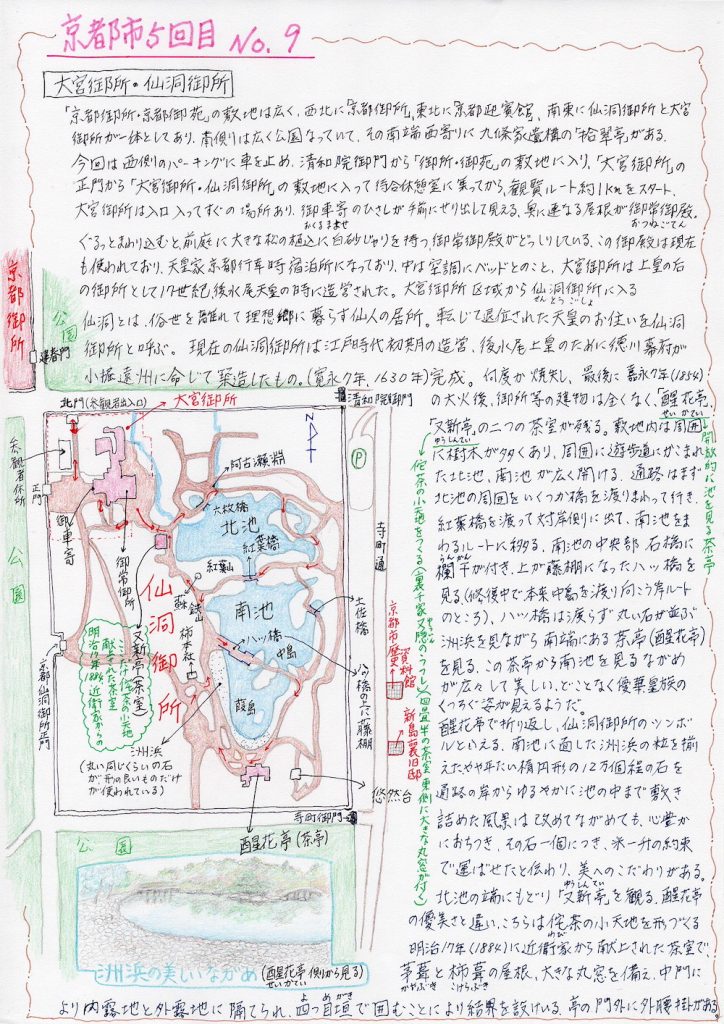 京都市5回目 No.9
大宮御所・仙洞御所
「京都御所・京都御苑」の敷地は広く、西北に「京都御所」、東北に「京都迎賓館」、南東に仙洞御所と大宮
御所が一体としてあり、南側りは広く公園なっていて、その南端西寄りに九條家遺構の「拾翠亭」がある。
今回は西側のパーキングに車を止め、清和院御門から「御所・御苑」の敷地に入り、「大宮御所」の
正門から「大宮御所・仙洞御所」の敷地に入って待合休憩室に集ってから、観覧ルート約1Kmをスタート、
大宮御所は入口入ってすぐの場所あり、御車寄のひさしが手前にせり出して見える、奥に連なる屋根が御常御殿。
おくるまよせ
おつねごてん
ぐるっとまわり込むと、前庭に大きな松の植込に白砂じゃりを持つ、御常御殿がどっしりしている、この御殿は現在
も使われており、天皇家京都行幸時宿泊所になっており、中は空調にベッドとのこと、大宮御所は上皇の后
の御所として17世紀、後水尾天皇の時に造営された。大宮御所区域から仙洞御所に入る
せんとうごしょ
仙洞とは、俗世を離れて理想郷に暮らす仙人の居所。転じて退位された天皇のお住いを仙洞
御所と呼ぶ。現在の仙洞御所は江戸時代初期の造営、後水尾上皇のために徳川幕府が
小振遠洲に命じて築造したもの。(寛永7年、1630年)完成。何度か焼失し、最後に嘉永7年(1854)
の大火後、御所等の建物は全くなく、「醒花亭」、
せいかてい
「又新亭」の二つの茶室が残る。敷地内は周囲
ゆうしんてい
に樹木が多くあり、周囲に遊歩道にかこまれ
た北池、南池が広く開ける、通路はまず
北池の周囲をいくつか橋を渡りまわって行き、
紅葉橋を渡って対岸側に出て、南池をま
わるルートに移る、南池の中央部石橋に
欄干が付き、上が藤棚になった八ッ橋を
らんかん
見る、(修復中で本来中島を渡り向こう岸ルート
のところ)、八ッ橋は渡らず丸い石が並ぶ
洲浜を見ながら南端にある茶亭(醒花亭)
を見る、この茶亭から南池を見るながめ
が広々して美しい、どことなく優華皇族の
くつろぐ姿が見えるようだ。
醒花亭で折り返し、仙洞御所のシンボ
ルといえる、南池に面した洲浜の粒を揃
えたやや平たい楕円形の12万個程の石を
通路の岸からゆるやかに池の中まで敷き
詰めた風景は改めてながめても、心豊か
におちつき、その石一個につき、米一升の約束
で運ばせたと伝わり、美へのこだわりがある。
北池の端にもどり「又新亭」を観る、醒花亭
ゆうしんてい
の優美さと違い、こちらは侘茶の小天地を形づくる
わび
明治17年(1884)に近衛家から献上された茶室で、
茅葺と柿葺の屋根、大きな丸窓を備え、中門に
かやぶき
こけらぶき
より内露地と外露地に隔てられ、四つ目垣で囲むことにより結界を設けいる、亭の門外に外腰掛がある。
よつめがき
開放的に池を見る茶亭
侘茶の小天地をつくる(裏千家
四畳半の茶室 東側に大きな丸窓が付く)
京都御所
公園
建春門
北門(参観者出入口)
大宮御所
清和院御門
N
P
参観者休所
正門
御車寄
御常御所
公園
京都仙洞御所正門
阿古瀬淵
六枚橋
北池
紅葉橋
紅葉山
蘇鉄山
仙洞御所
又新亭(茶室)
ここだけ侘茶の小天地
献上された茶室
明治17年、近衛家からの
南池
柿本社
八ッ橋
中島
葭島
土佐橋
八ッ橋の上に藤棚
寺町通
京都市歴史資料館
新島襄旧邸
洲浜
(丸い同じくらいの石
が、形の良いものだけ
が使われている)
悠然台
寺町御門
醒花亭(茶亭)
公園
洲浜の美しいながめ(醒花亭側から見る)
せいかてい